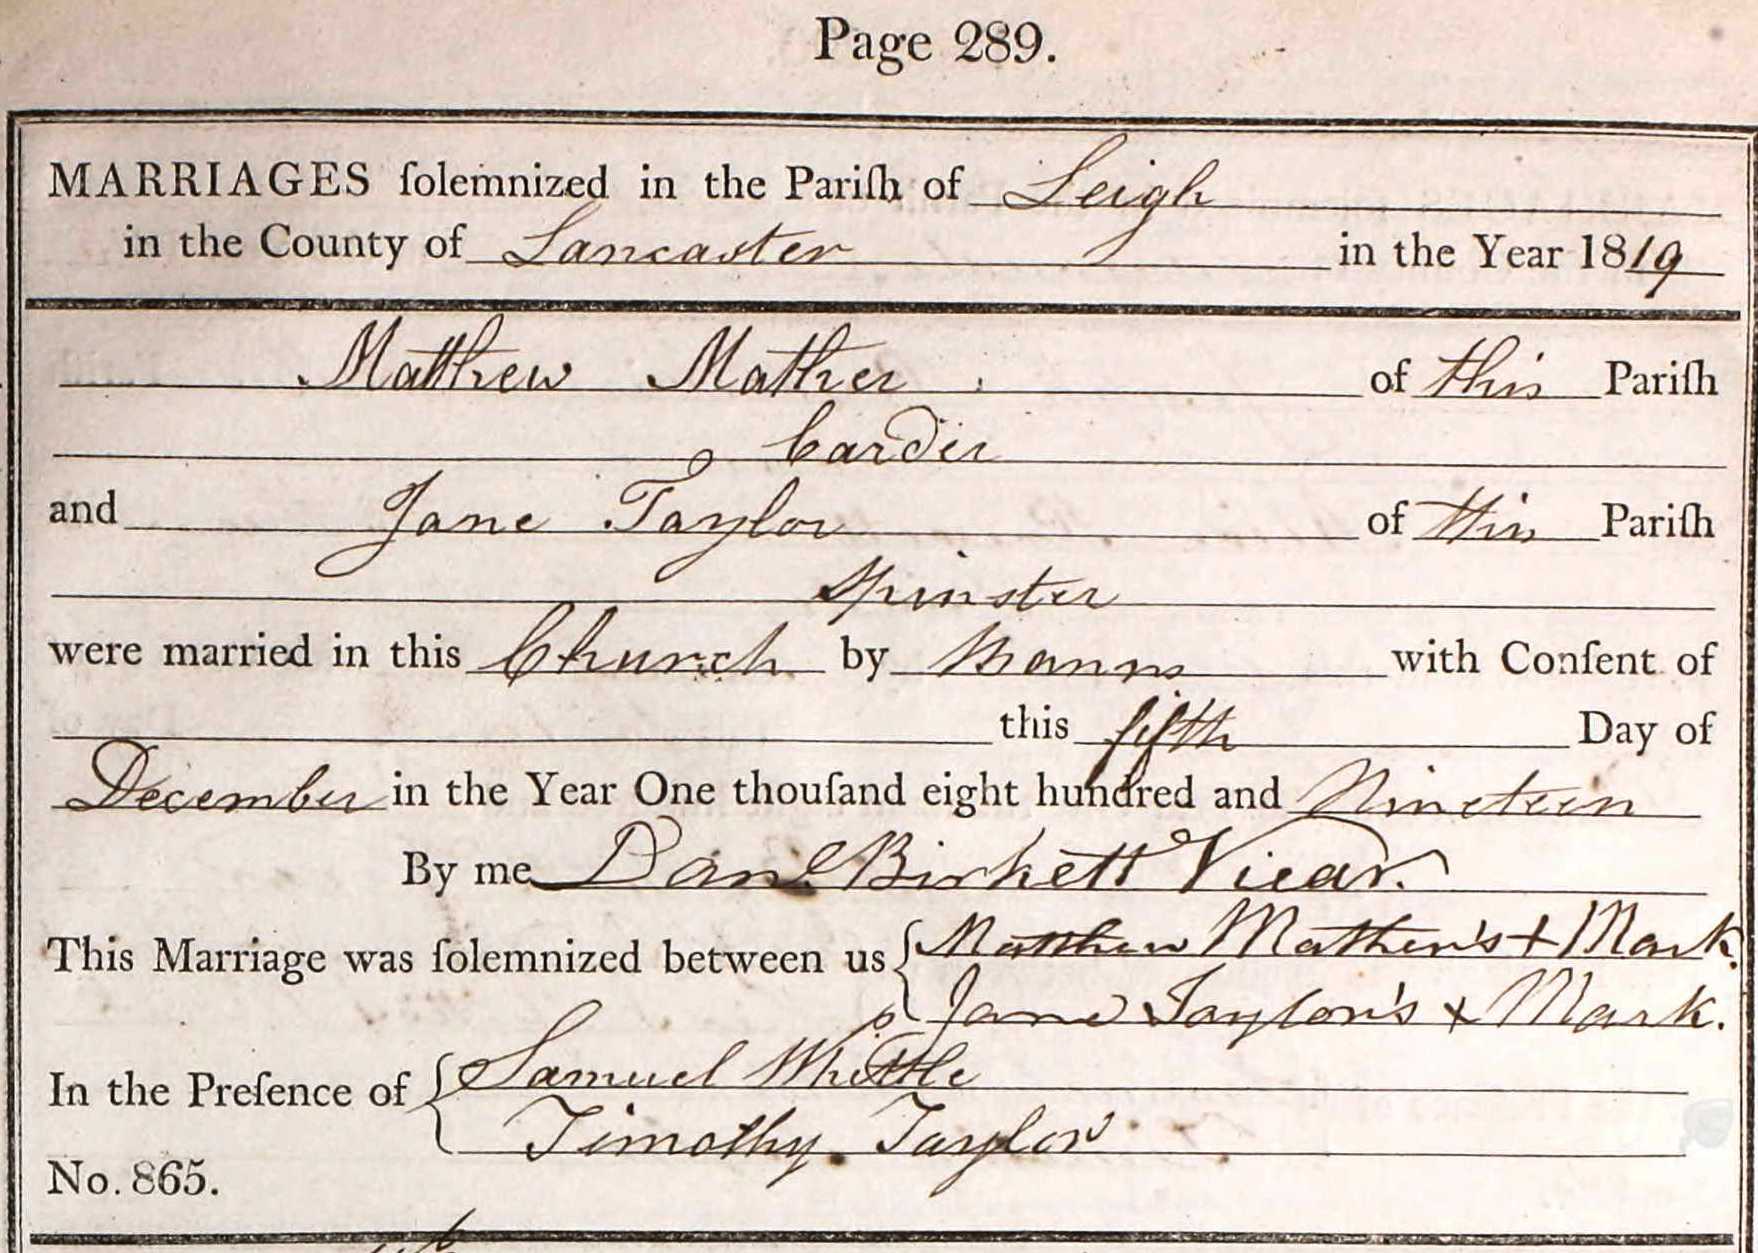 Page 289.
MARRIAGES ſolemnized in the Pariſh of Leigh
in the County of Lancaster in the Year 1819
Matthew Mather of this Pariſh
Carder
and Jane Taylor of this Pariſh
Spinster
were married in this Church by Banns with Conſent of
this fifth Day of
December in the Year One thouſand eight hundred and Nineteen
By me Danl Birkett Vicar.
This Marriage was ſolemnized between us { Matthew Mather's + Mark.
Jane Taylor's x Mark.
In the Preſence of { Samuel Whittle
Timothy Taylor
No. 865.